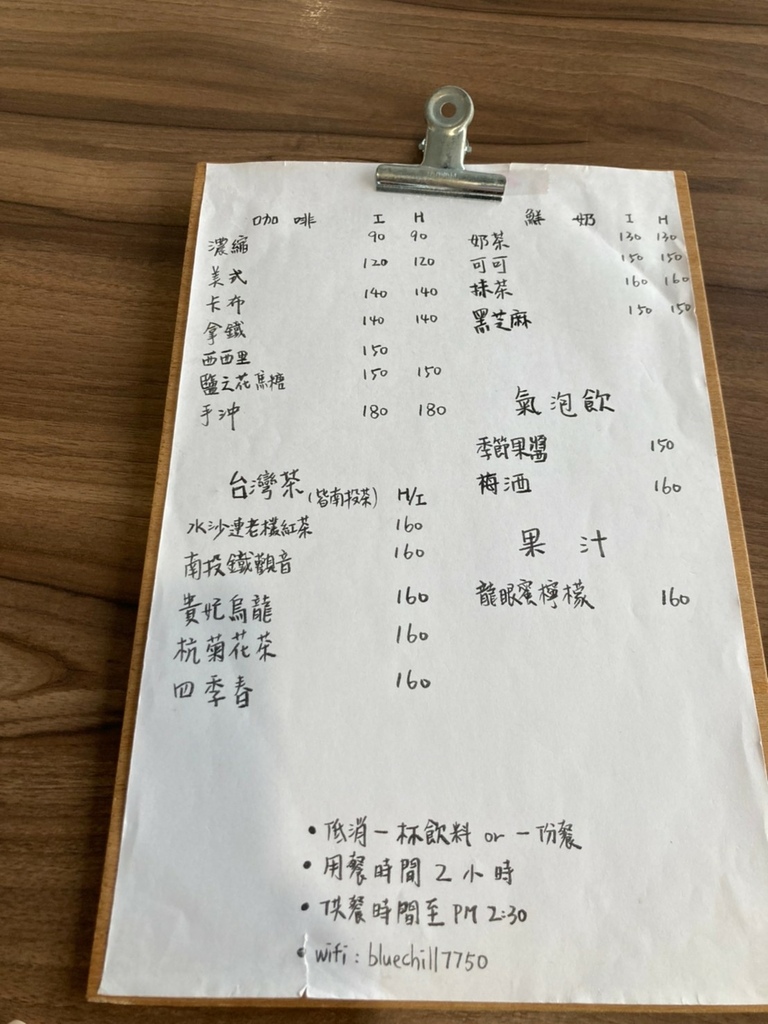 咖啡 I H
濃縮 90 90
美式 120 120
卡布 140 140
拿鐵 140 140
西西里 150
鹽之花焦糖 150 150
手沖 180 180
鮮奶 I H
奶茶 130 130
可可 150 150
抹茶 160 160
黑芝麻 150 150
氣泡飲
季節果醬 150
梅酒 160
台灣茶(皆南投茶) H/I
水沙連老欉紅茶 160
南投鐵觀音 160
貴妃烏龍 160
杭菊花茶 160
四季春 160
果汁
龍眼蜜檸檬 160
• 低消一杯飲料 or 一份餐
• 用餐時間 2 小時
• 供餐時間至 PM 2:30
• wifi : bluechill7750